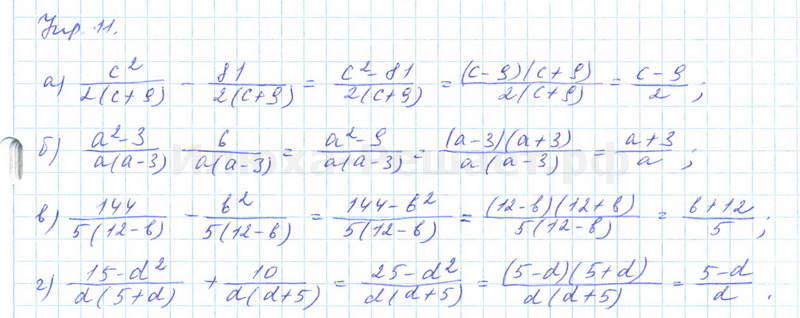 Упр. 11.
а) c²/2(c+9) - 81/2(c+9) = c²-81/2(c+9) = (c-9)(c+9)/2(c+9) = c-9/2 ;
б) a²-3/a(a-3) - 6/a(a-3) = a²-9/a(a-3) = (a-3)(a+3)/a(a-3) = a+3/a ;
в) 144/5(12-b) - b²/5(12-b) = 144-b²/5(12-b) = (12-b)(12+b)/5(12-b) = b+12/5 ;
г) 15-d²/d(5+d) + 10/d(d+5) = 25-d²/d(d+5) = (5-d)(5+d)/d(d+5) = 5-d/d .